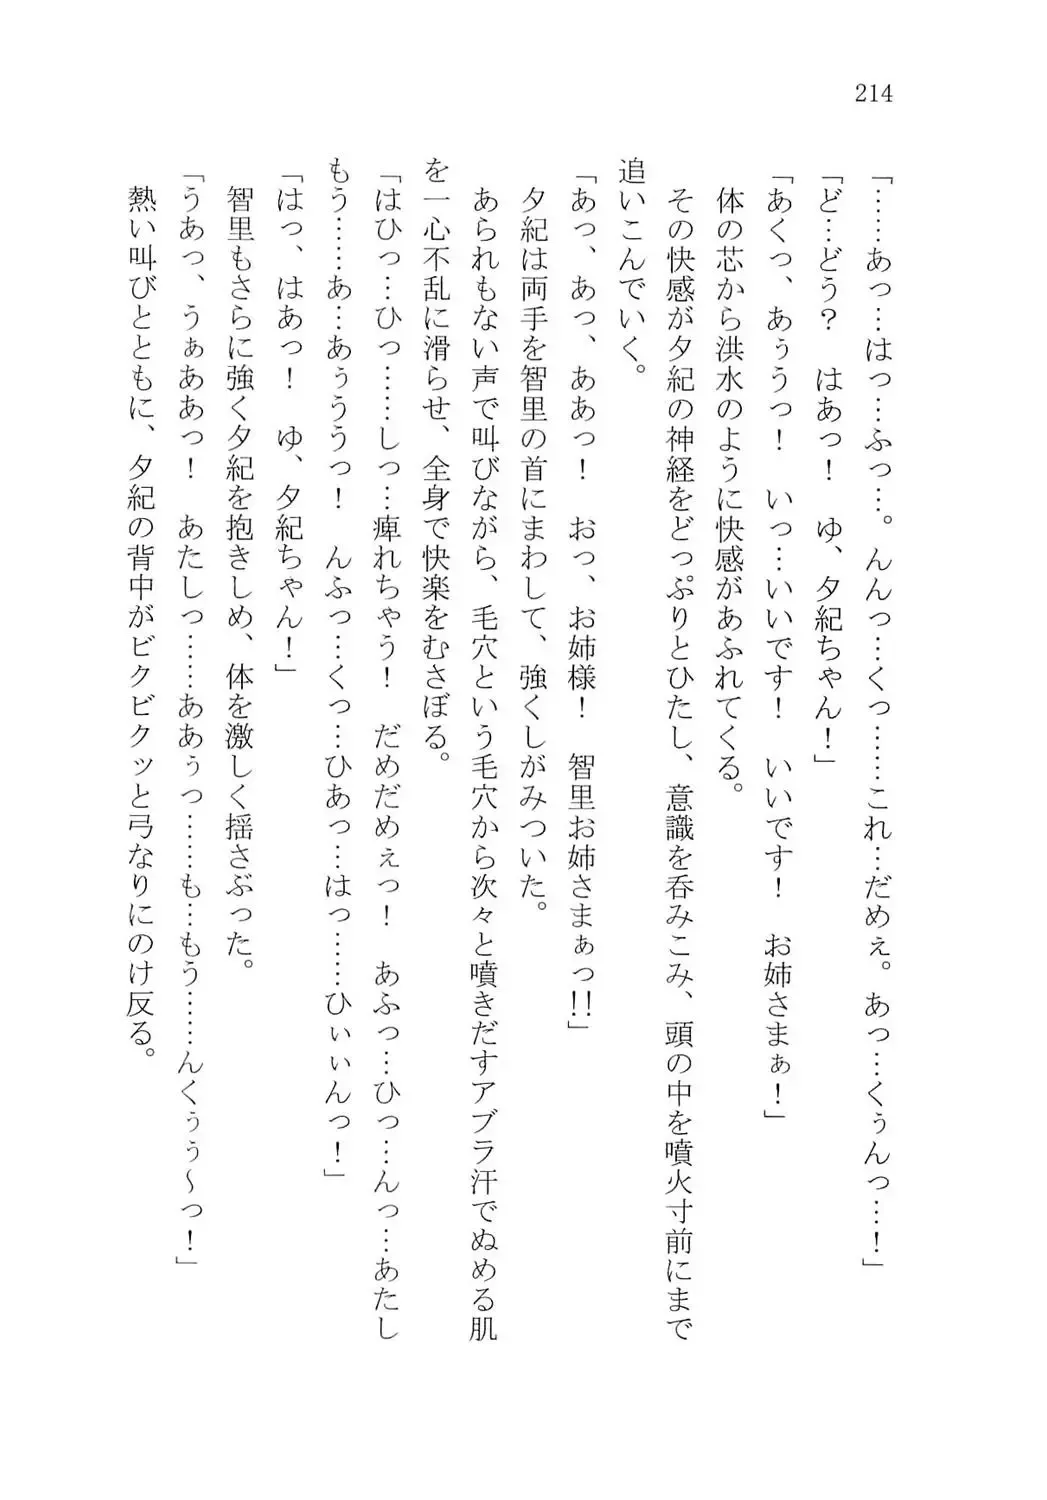 214
「……あっ…はっ…ふっ…。んんっ…くっ……これ…だめぇ。あっ…くぅんっ…！」
「ど…どう？　はあっ！　ゆ、夕紀ちゃん！」
「あくっ、あぅうっ！　いっ…いいです！　いいです！　お姉さまぁ！」
　体の芯から洪水のように快感があふれてくる。
　その快感が夕紀の神経をどっぷりとひたし、意識を呑みこみ、頭の中を噴火寸前にまで
追いこんでいく。
「あっ、あっ、ああっ！　おっ、お姉様！　智里お姉さまぁっ!!」
　夕紀は両手を智里の首にまわして、強くしがみついた。
　あられもない声で叫びながら、毛穴という毛穴から次々と噴きだすアブラ汗でぬめる肌
を一心不乱に滑らせ、全身で快楽をむさぼる。
「はひっ…ひっ……しっ…痺れちゃう！　だめだめぇっ！　あふっ…ひっ…んっ…あたし
もう……あ…あぅううっ！　んふっ…くっ…ひあっ…はっ……ひぃぃんっ！」
「はっ、はあっ！　ゆ、夕紀ちゃん！」
　智里もさらに強く夕紀を抱きしめ、体を激しく揺さぶった。
「うあっ、うぁああっ！　あたしっ……ああぅっ……も…もう……んくぅぅ～っ！」
　熱い叫びとともに、夕紀の背中がビクビクッと弓なりにのけ反る。